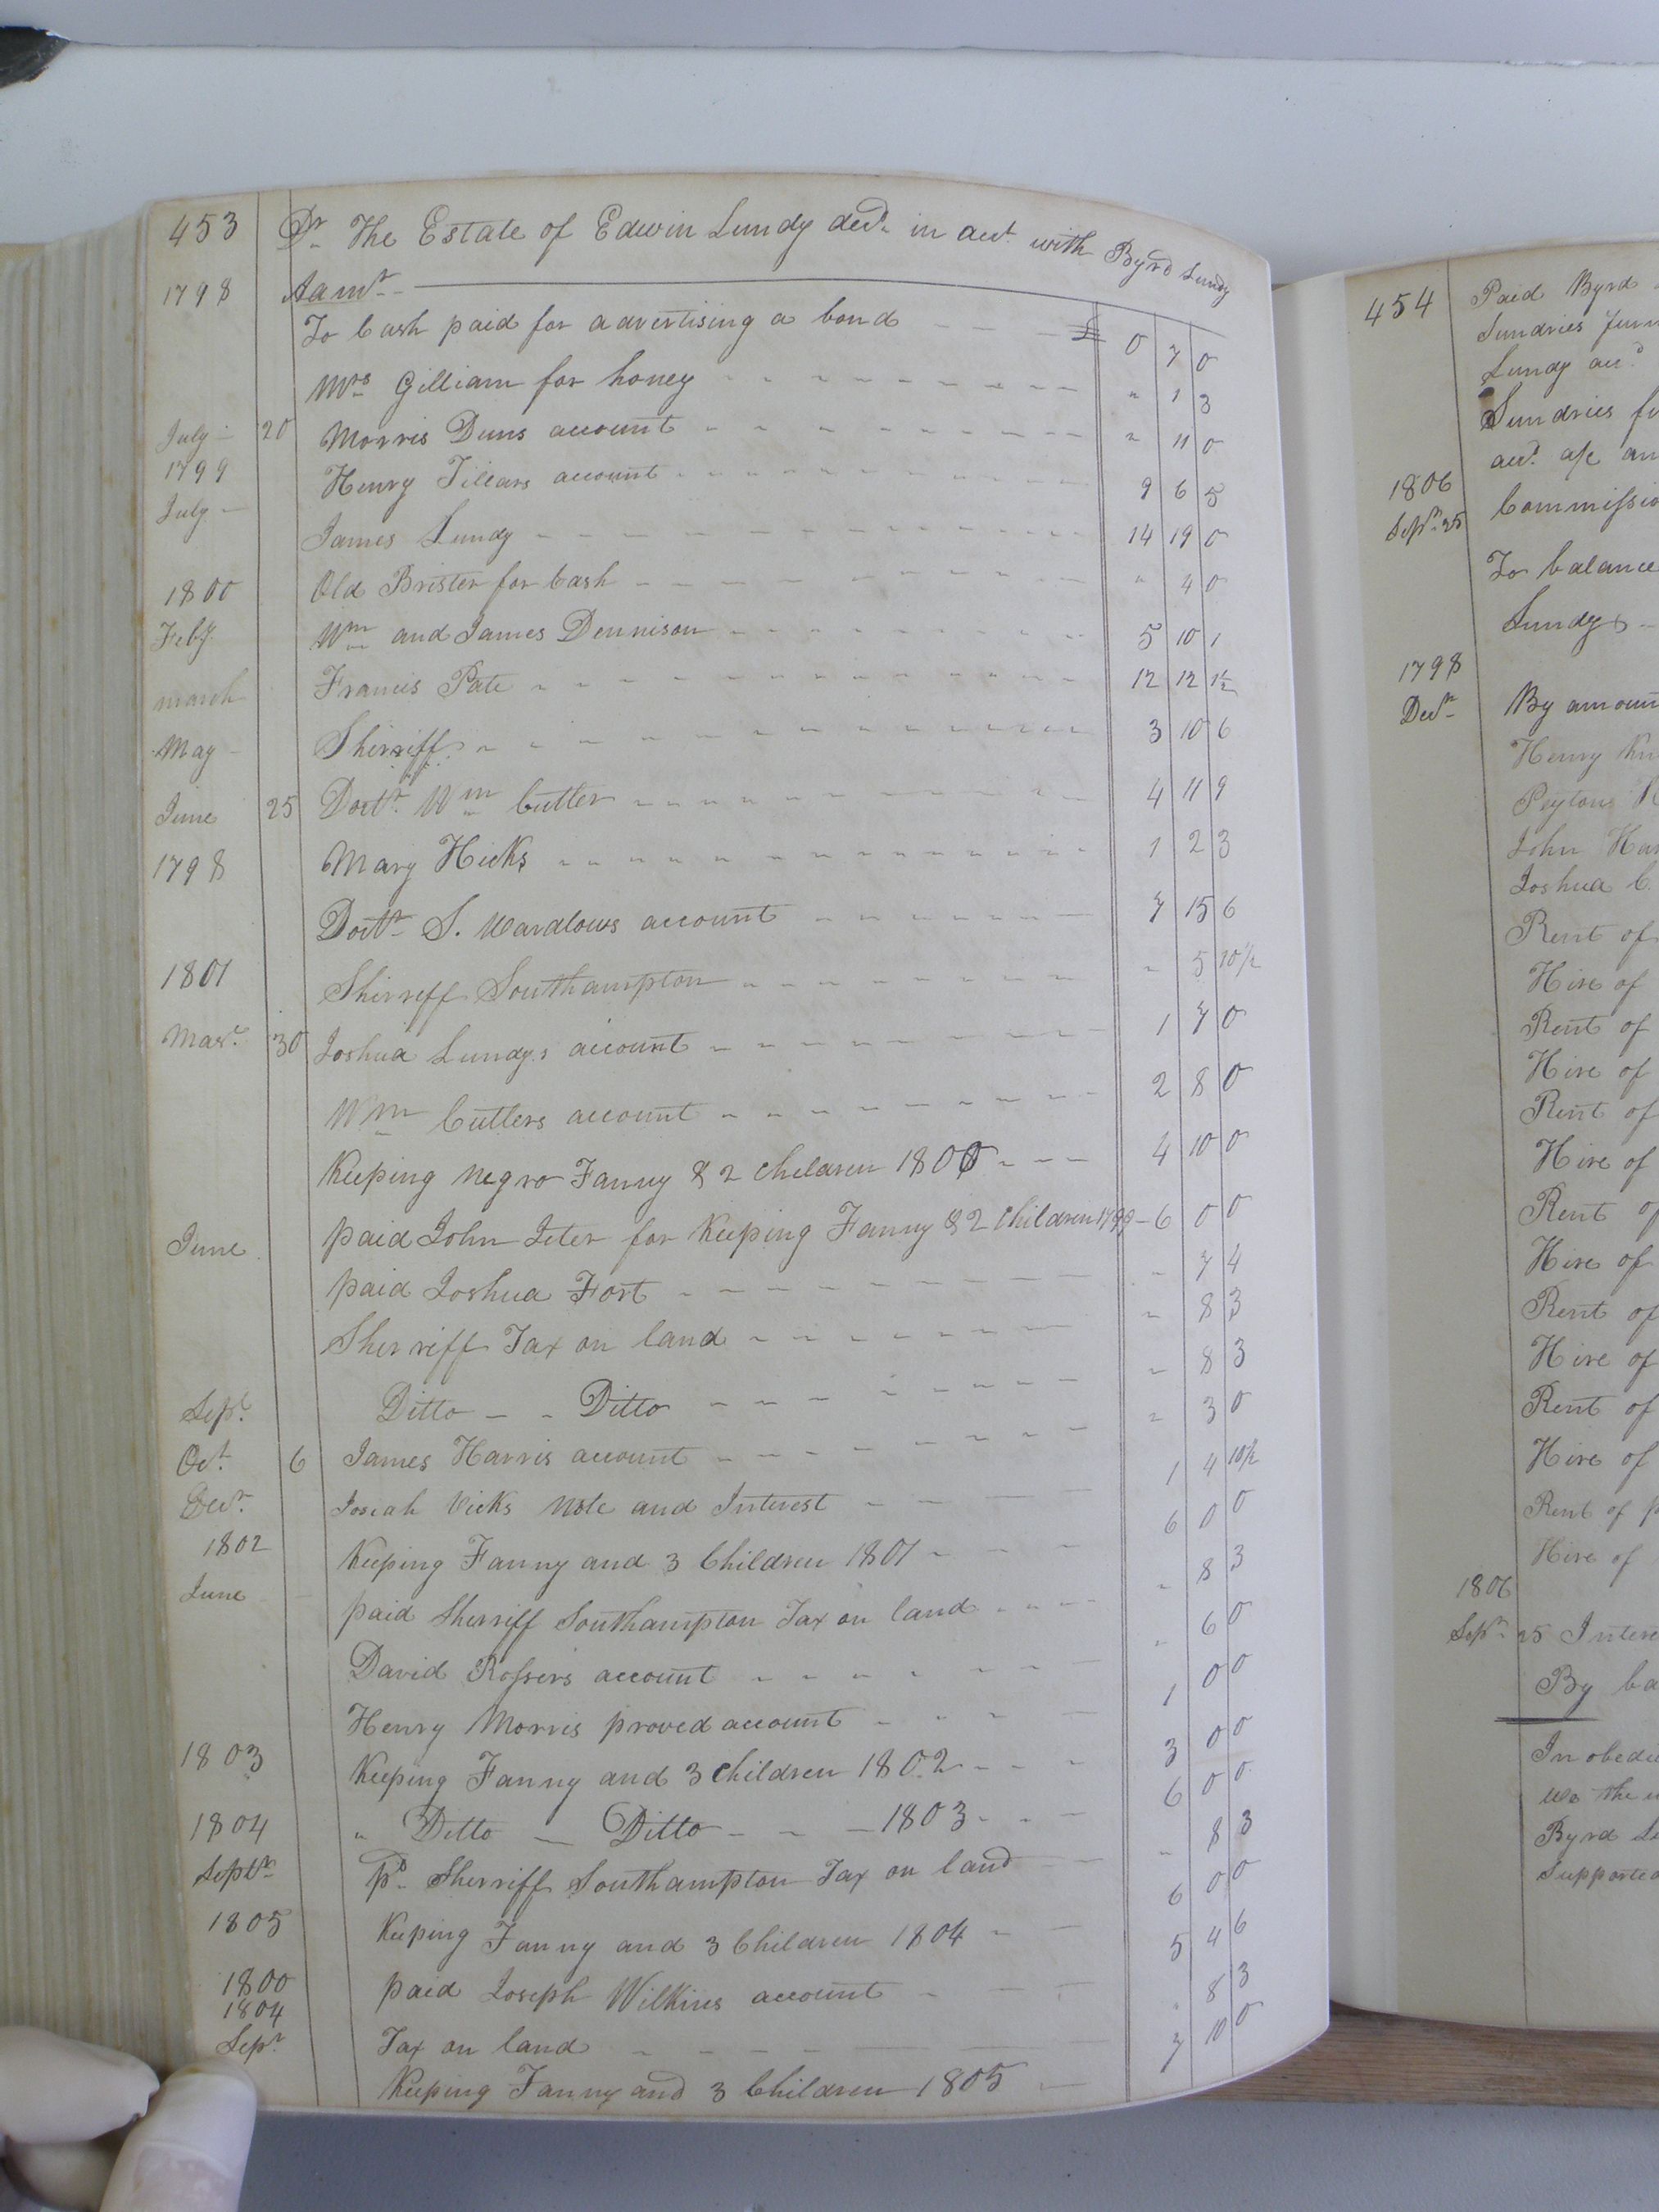 453 Dr. The Estate of Edwin Lundy decd. in acct. with Byrd Lundy
1798 Aamr.
To Cash paid for advertising a bond £ 0 7 0
Mrs Gilliam for honey " 1 3
July 20 Morris Duns account " 11 0
1799 Henry Tillars account 9 6 5
July
James Lundy 14 19 0
1800 Old Brister for Cash " 4 0
Feby. Wm and James Dennison 5 10 1
march Francis Pate 12 12 1½
May Sherriff 3 10 6
June 25 Doctr. Wm Cutler 4 11 9
1798 Mary Hicks 1 2 3
Doctr. S. Wardlows account 7 15 6
1801 Sherreff Southampton " 5 10½
Mar. 30 Joshua Lundy's account 1 7 0
Wm Cutlers account 2 8 0
Keeping negro Fanny & 2 Children 1800 4 10 0
June paid John Jeter for Keeping Fanny & 2 Children 1799 6 0 0
paid Joshua Fort " 7 4
Sherreff Tax on land " 8 3
Sept. Ditto Ditto " 8 3
Oct. 6 James Harris account " 3 0
Decr. Josiah Vicks note and Interest 1 4 10½
1802 Keeping Fanny and 3 Children 1801 6 0 0
June paid Sherriff Southampton Tax on land " 8 3
David Rossers account " 6 0
Henry Morris proved account 1 0 0
1803 Keeping Fanny and 3 Children 1802 3 0 0
1804 " Ditto Ditto 1803 6 0 0
Septr. pd. Sherriff Southampton Tax on land " 8 3
1805 Keeping Fanny and 3 Children 1804 6 0 0
1800 paid Joseph Wilkins account 5 4 6
1804
Sepr. Tax on land " 8 3
Keeping Fanny and 3 Children 1805 7 10 0
454 Paid Byrd
Sundries furn
Lundy
Sundries
acct. a/c an
1806
Sepr. 25 Commissio
To balance
Lundy
1798
Decr. By amoun
Henry
Peyton
John Har
Joshua C.
Rent of
Hire of
Rent of
Hire of
Rent of
Hire of
Rent of
Hire of
Rent of
Hire of
Rent of
Hire of
Rent of p
Hire of
1806
Sepr. 25 Intere
By ba
In obedie
We the u
Byrd Lu
Supported